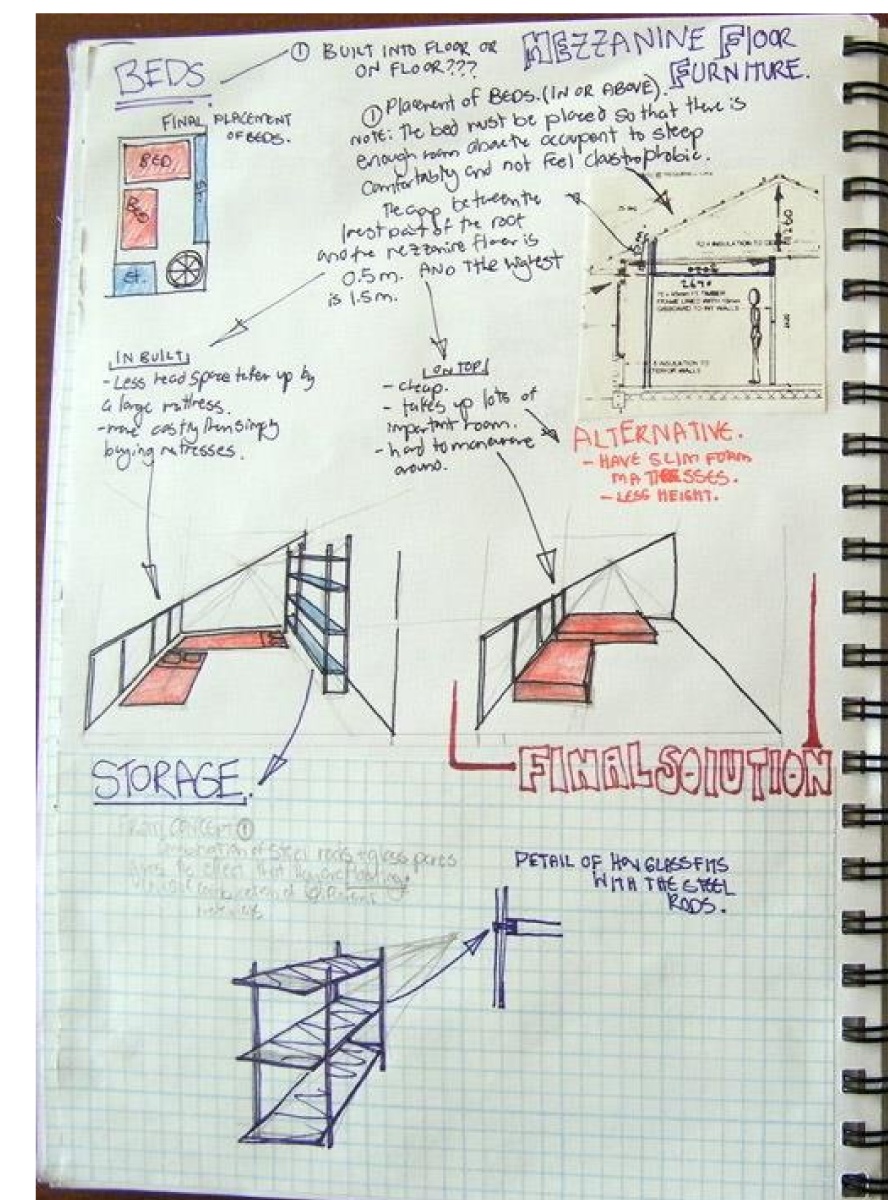 BEDS
① BUILT INTO FLOOR OR
ON FLOOR???
MEZZANINE FLOOR
FURNITURE.
FINAL PLACEMENT
OF BEDS.
BED
BED
ST.
ST.
① Placement of BEDS. (IN OR ABOVE).
NOTE: The bed must be placed so that there is
enough room above the occupant to sleep
comfortably and not feel claustrophobic.
The gap between the
lowest part of the roof
and the mezzanine floor is
0.5m. AND The highest
is 1.5m.
1260
2690
FRAME LINED WITH 10mm
GIBBOARD TO INT WALLS
INSULATION TO
IN BUILT
- Less head space taken up by
a large mattress.
- more costly than simply
buying mattresses.
ON TOP
- cheap.
- takes up lots of
important room.
- hard to maneuver
around.
ALTERNATIVE.
- HAVE SLIM FOAM
MATRESSES.
- LESS HEIGHT.
FINAL SOLUTION
STORAGE.
FROM CONCEPT ①
Combination of steel rods + glass panes
DETAIL OF HOW GLASS FITS
WITH THE STEEL
RODS.